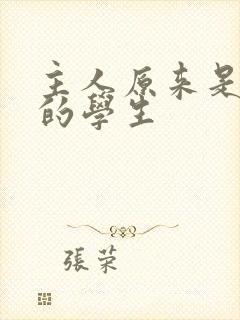 主人原来是
的學生
張荣